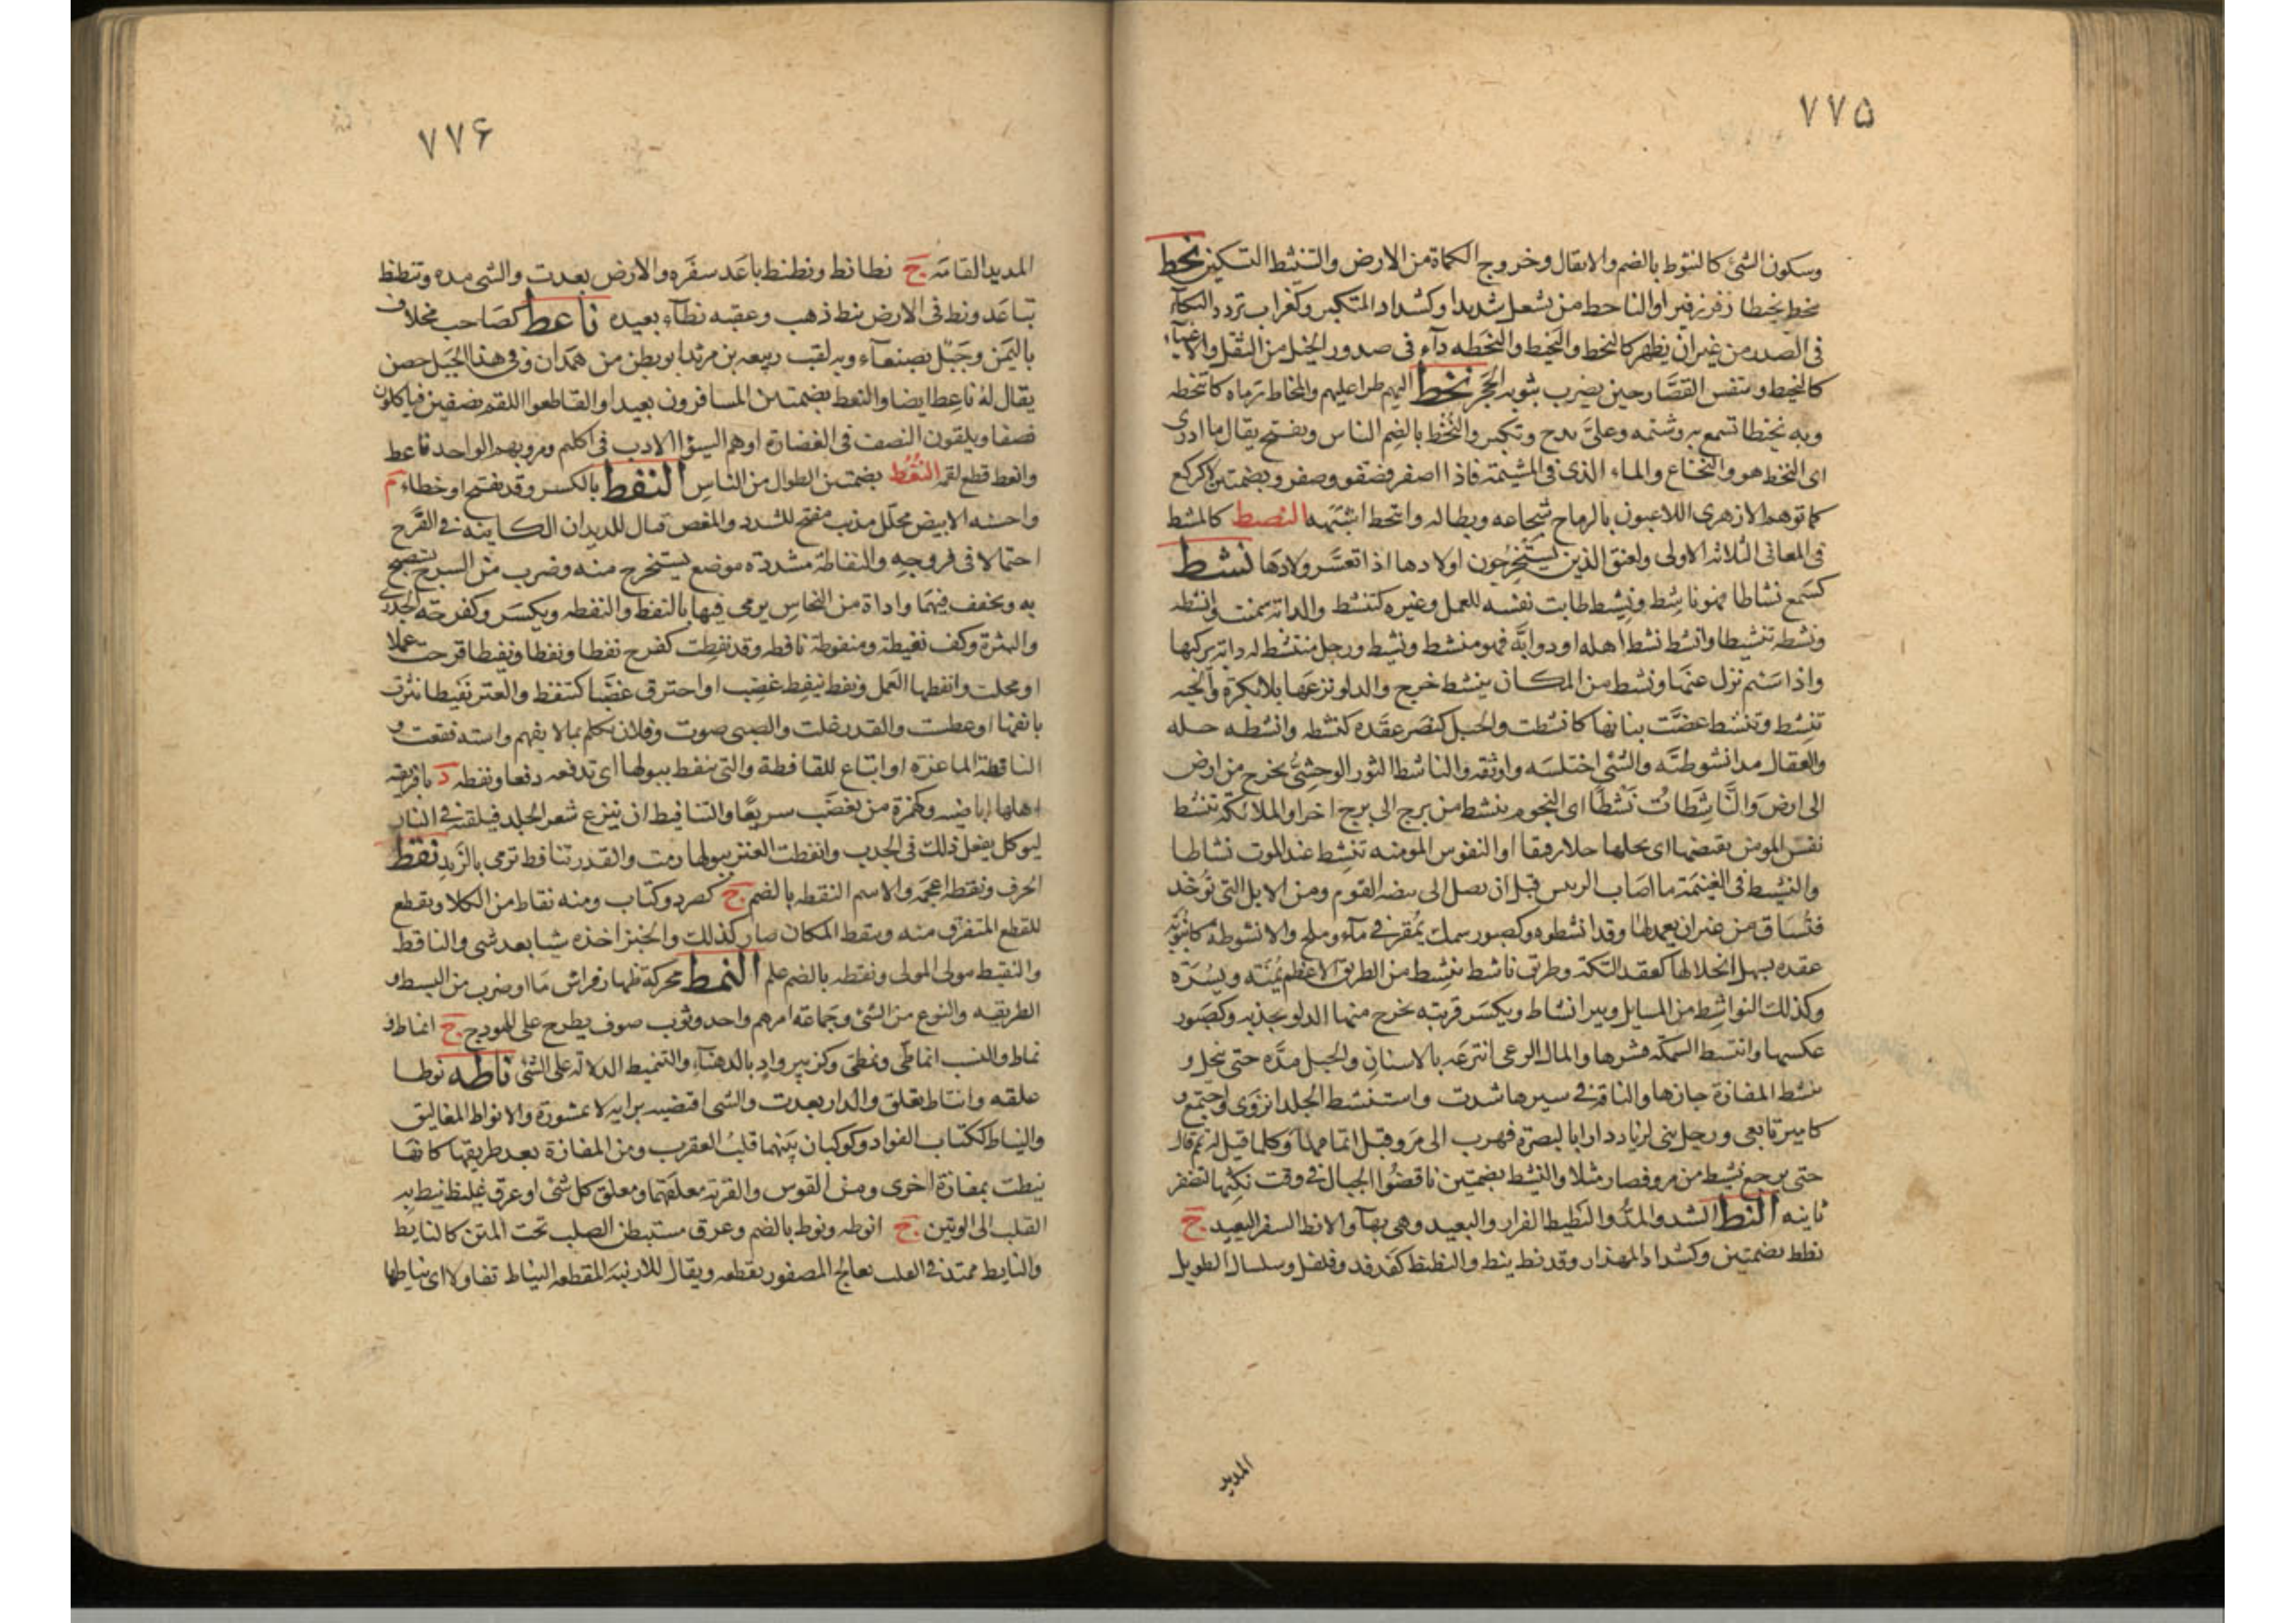 ٧٧۵
وسكون الشئ كالنثوط بالضم والاثقال وخروج الكماة من الارض والتنثط التسكين نحط
ينحط نحيطا زفر زفيرا والناحط من يسعل شديدا وكشداد المتكبر وكغراب تردد البكآء
فى الصدر من غير ان يظهر كالنحط والنحيط والنحطه دآء فى صدور الخيل من الثقل والاعيآء
كالنحيط وتنفس القصّار حين يضرب بثوبه الحجر نخط اليهم طرا عليهم والمخاط رماه كانتخطه
وبه نخيطا تسمع به وشتمه وعلىَّ بذخ وتكبر والنُّخط بالضم الناس ويفتح يقال ما ادرى
اى النخط هو والنخاع والماء الذى فى المشيمة فاذا اصفر فصفق وصفر وبضمتين لا كركع
كما توهم الازهرى اللاعبون بالرماح شجاعه وبطاله وانتخط اشبهه النسط كالمسط
فى المعانى الثلاثه الاولى ولعنق الذين يستخرجون اولادها اذا تعسَّر ولادها نشط
كسمع نشاطا فهو ناشِط ونشيط طابت نفسه للعمل وغيره كتنشط والدابة سمنت وانشطه
ونشطه تنشيطا وانشط نشط اهله او دوابّه فهو منشط ونشيط ورجل متنشط له دابه يركبها
واذا سَئم نزل عنها ونشط من المكان ينشط خرج والدلو نزعها بلا بكرة والحيه
تنشِط وتنشط عضَّت بنابها كانشطت والحبل كنصر عقده كنشطه وانشطه حله
والعقال مد انشوطته والشئ اختلسه واوثقه والناشط الثور الوحشىُّ يخرج من ارض
الى ارض وَالنَّاشِطَاتِ نَشْطًا اى النجوم ينشط من برج الى برج اخر او الملائكة تنشط
نفس المومن بقبضها اى يحلها حلا رفيقا او النفوس المومنه تنشط عند الموت نشاطا
والنشيط فى الغنيمة ما اصاب الرئيس قبل ان يصل الى بيضه القوم ومن الابل التى توخد
فتساق من غير ان يعمد لها وقد انشطوه وكصبور سمك يمقر فى مآء وملح والانشوطة كانبوبة
عقده يسهل انحلالها كعقد التكة وطريق ناشط ينشط من الطريق الاعظم يمنَة ويسرَة
وكذلك النواشِط من المسايل وبير انشاط ويكسر قريبه يخرج منها الدلو بجذبه وكصبور
عكسها وانتشط السمكة قشرها والمال الرعى انتزعه بالاسنان والحبل مدَّه حتى ينحل و
تنشط المفازة جازها والناقة فى سيرها شدت واستنشط الجلد انزوى واجتمع و
كامير تابعى ورجل بنى لزياد دارا بالبصرة فهرب الى مرو قبل اتمامها وكلما قيل له تمم قال
حتى يرجع نشيط من مرو فصار مثلا والنشط بضمتين ناقضوا الحبال فى وقت نكثها لتضفر
ثانيه النط الشد والمدُّ والنطيط الفرار والبعيد وهى بهآء والانط السفر البعيد ج
نطط بضمتين وكشداد المهذار وقد نط ينط والنطنط كفدفد وفلفل وسلسال الطويل
المديد
٧٧۶
المديد القامة ج نطانط ونطنط باعَد سفَره والارض بعدت والشى مده وتنطنط
تباعَد ونط فى الارض ينط ذهب وعقبه نطآء بعيده ناعط كصَاحب مخلاف
باليمَن وجَبَل بصنعآء وبه لقب ربيعه بن مرثد ابو بطن من همدان وفى هذا الجبَل حصن
يقال لهُ ناعِط ايضا والنعط بضمتين المسافرون بعيدا والقاطعوا اللقم بنصفين فياكلون
نصفا ويلقون النصف فى الغضارة او هم السيؤا الادب فى اكلهم ومروبهم الواحد ناعط
وانعط قطع لقمه النُغُط بضمتين الطوال من الناس النفط بالكسر وقد يفتح او خطاء م
واحسنه الابيض محلّل مذيب مفتح للسدد والمغص قتال للديدان الكاينه فى الفَرْج
احتمالا فى فروجهِ والنفاطة مشددة موضع يستخرج منه وضرب من السرج يستصبح
به ويخفف فيهما واداة من النحاس يرمى فيها بالنفط والنفطه ويكسَر وكفرحة الجدرى
والبثرة وكف نفيطة ومنفوطة نافطه وقد نفِطت كفرح نفطا ونفطا ونفيطا قرحت عملا
او مجلت وانفطها العمل ونفط ينفِط غضِب او احترق غضبًا كتنفط والعنز نفيطا نثرت
بانفها او عطست والقدر غلت والصبى صوت وفلان تكلم بما لا يفهم واسته فقعت و
النافطة الماعزه او اتباع للعافطة والتى تنفط ببولها اى تدفعه دفعا ونفطه د بافريقه
اهلها اباضيه وكهمزة من يغضَب سريعًا والتنافيط ان ينزع شعر الجلد فيلقيه فى النار
ليوكل يفعل ذلك فى الجدب وانفطت العنز ببولها رمت والقدر تنافط ترمى بالزَّبد نقط
الحرف ونقطه اعجمه والاسم النقطه بالضم ج كصرد وكتاب ومنه نقاط من الكلا ونقطع
للقطع المتفرق منه وتنقط المكان صار كذلك والخبز اخذه شيا بعد شى والناقط
والنقيط مولى المولى ونقطه بالضم علم النمط محركة ظهارة فراش مَا او ضرب من البسط و
الطريقه والنوع من الشئ وجماعة امرهم واحد وثوب صوف يطرح على الهودج ج انماط و
نماط والنسب انماطّى ونمطى وكزبير وادٍ بالدهنآء والتنميط الدلالة على الشئ ناطه نوطا
علقه وانتاط تعلق والدار بعدت والشى اقتضبه برايه لا بمشورة والانواط المعاليق
والنياط ككتاب الفواد وكوكبان بينهما قلب العقرب ومن المفازة بعد طريقها كانها
نيطت بمفازة اخرى ومن القوس والقربة معلقهما ومعلق كل شئ او عرق غليظ نيط به
القلب الى الوتين ج انوطه ونوط بالضم وعرق مستبطن الصلب تحت المتن كالنايط
والنايط ممتد فى الصلب يعالج المصفور بقطعه ويقال للارنب المقطعه النياط تفاولا اى نياطها